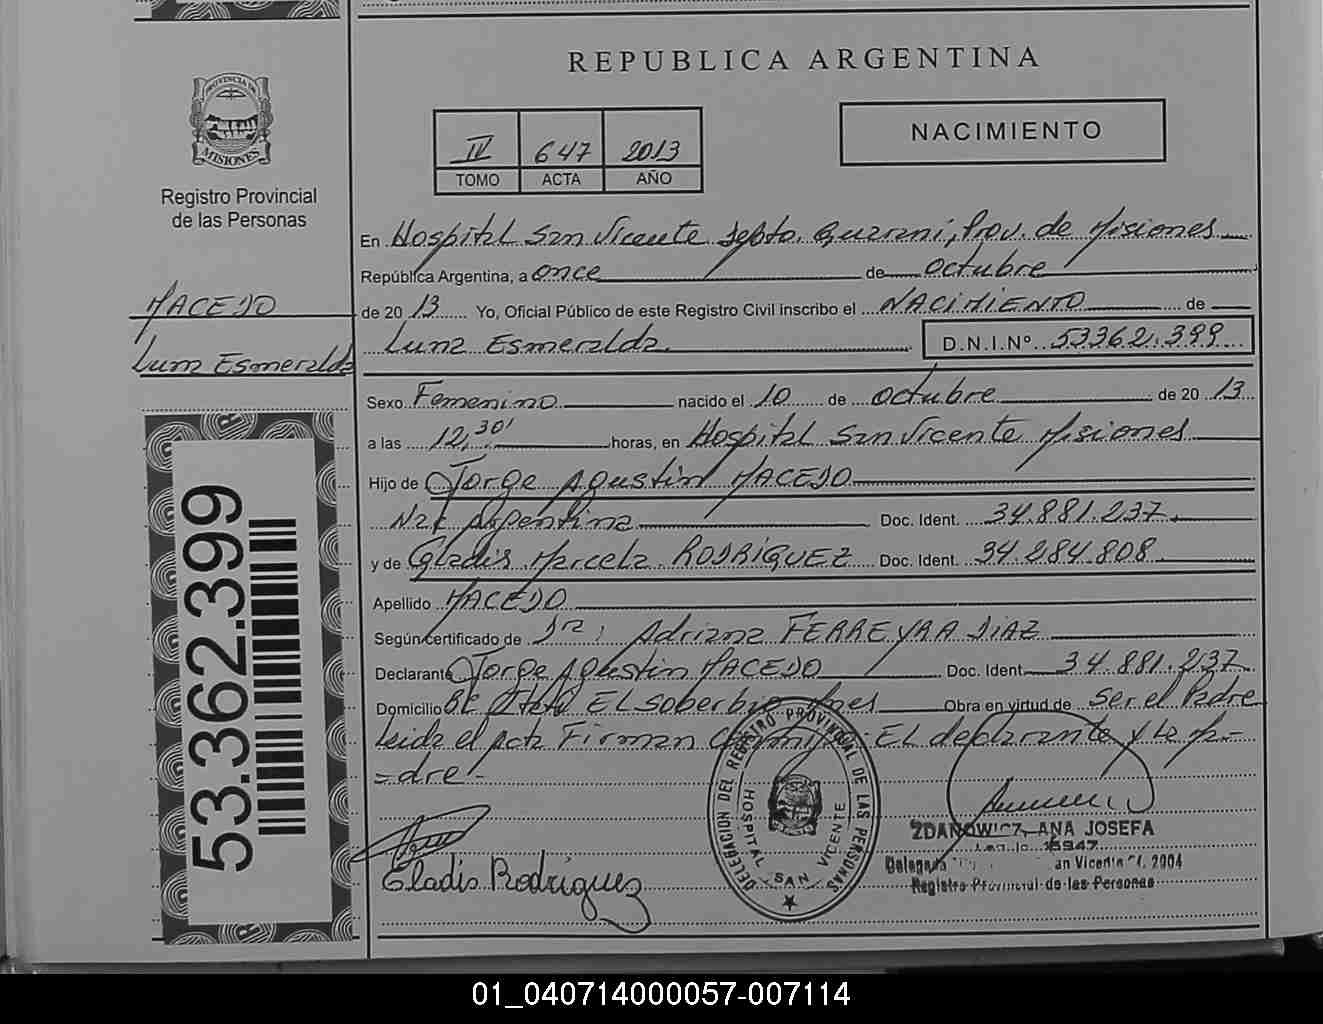 REPUBLICA ARGENTINA
PROVINCIA DE
MISIONES
Registro Provincial
de las Personas
IV 647 2013
TOMO ACTA AÑO
NACIMIENTO
En Hospital San Vicente Depto. Guarani, Prov. de Misiones
República Argentina, a once de octubre
de 20 13 Yo, Oficial Público de este Registro Civil inscribo el NACIMIENTO de
Luna Esmeralda D.N.I.Nº 53362.399
MACEDO
Luna Esmeralda
Sexo Femenino nacido el 10 de octubre de 20 13
a las 12,30' horas, en Hospital San Vicente Misiones
Hijo de Jorge Agustin MACEDO
Nac Argentina Doc. Ident. 34.881.237
y de Gladis Marcela RODRIGUEZ Doc. Ident. 34.284.808
Apellido MACEDO
Según certificado de Dra: Adriana FERREYRA DIAZ
Declarante Jorge Agustin MACEDO Doc. Ident. 34.881.237
Domicilio El Soberbio Mnes Obra en virtud de Ser el Padre
Leida el acta Firman El declarante y la ma-
=dre.-
53.362.399
Gladis Rodriguez
DELEGACION DEL REGISTRO PROVINCIAL DE LAS PERSONAS
HOSPITAL SAN VICENTE
ZDANOWICZ, ANA JOSEFA
Delegada San Vicente Cl. 2004
Registro Provincial de las Personas
01_040714000057-007114